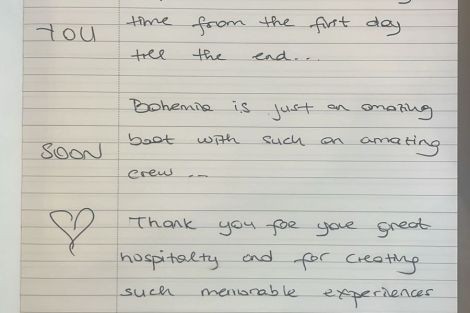 time from the first day
YOU
till the end...
Bohemia is just an amazing
SOON
boat with such an amazing
crew ...
Thank you for your great
hospitalty and for creating
such memorable experiences